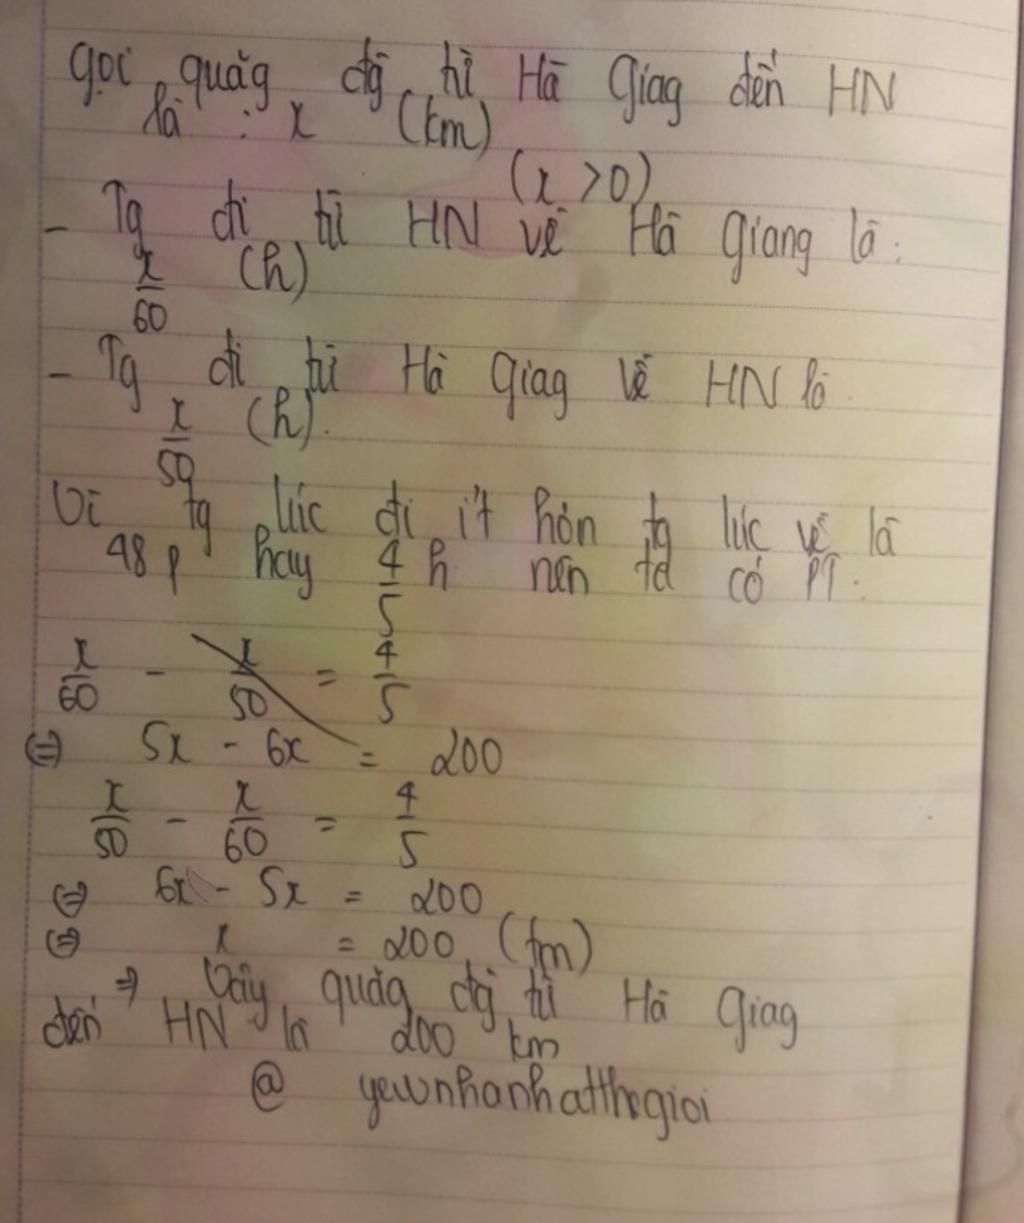 gọi quãg đg từ Hà Giag đến HN
là : x (km)
(x > 0)
- Tg đi từ HN về Hà Giang là :
x/60 (h)
- Tg đi từ Hà Giag về HN là
x/50 (h).
Vì tg lúc đi ít hơn tg lúc về là
48 p hay 4/5 h nên ta có PT :
x/60 - x/50 = 4/5
(=) 5x - 6x = 200
x/50 - x/60 = 4/5
(=) 6x - 5x = 200
(=) x = 200 (tm)
⇒ Vậy quãg đg từ Hà Giag
đến HN là 200 km
@ yewnhanhatthegioi